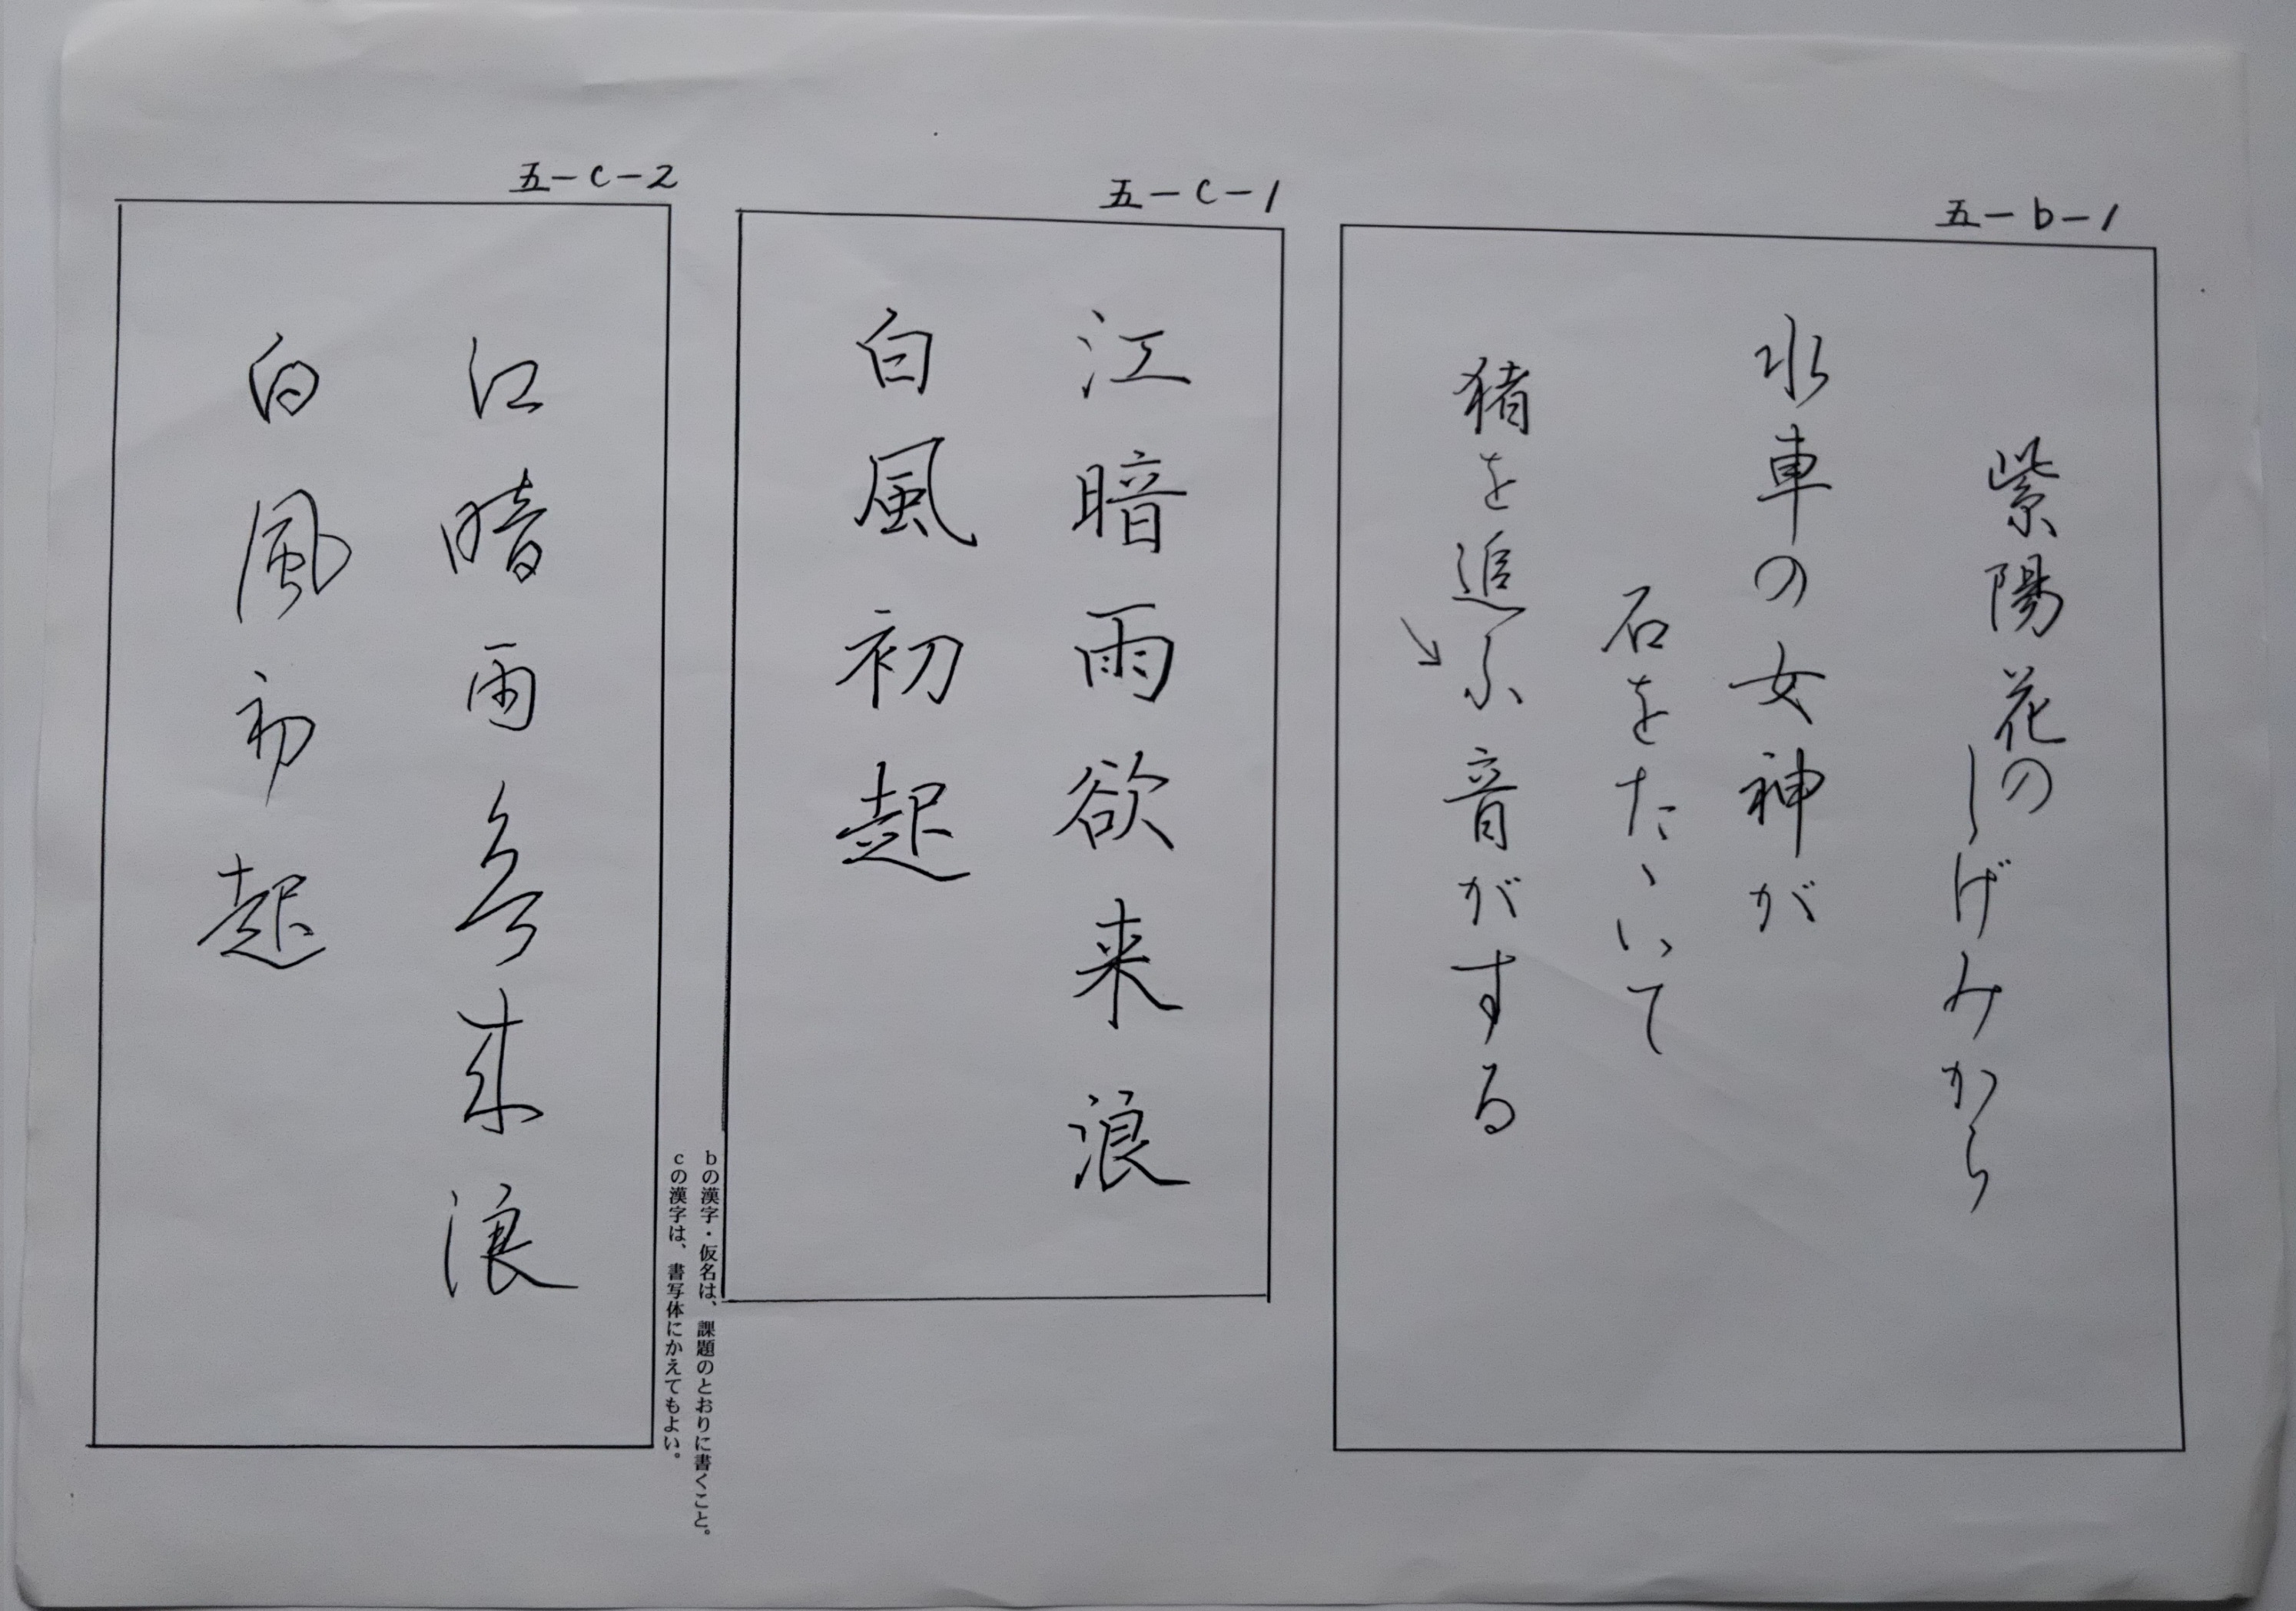 五-b-1
紫陽花の
しげみから
水車の女神が
石をたゝいて
猪を追ふ音がする
五-c-1
江暗雨欲来浪
白風初起
bの漢字・仮名は、課題のとおりに書くこと。
cの漢字は、書写体にかえてもよい。
五-c-2
江暗雨欲来浪
白風初起